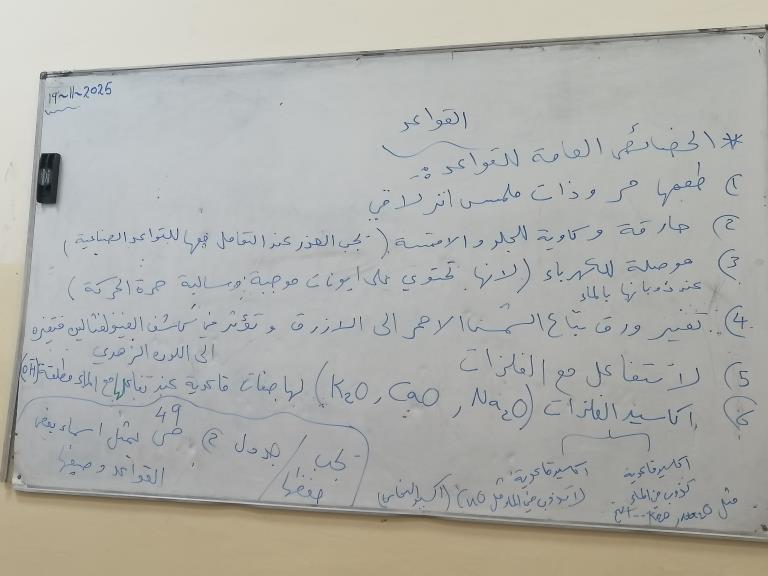 19-11-2025
القواعد
* الخصائص العامة للقواعد :-
① طعمها مر وذات ملمس انزلاقي
② حارقة وكاوية للجلد والانسجة (يجب الحذر عند التعامل معها للقواعد الصناعية)
③ موصلة للكهرباء (لانها تحتوي على ايونات موجبة وسالبة حرة الحركة)
عند ذوبانها بالماء
④ تغير ورق تباع الشمس الاحمر الى الازرق وتؤثر في كاشف الفينولفثالين فتغيره
الى اللون الزهري
⑤ لا تتفاعل مع الفلزات
⑥ اكاسيد الفلزات (K₂O, CaO, Na₂O) لها صفات قاعدية عند تفاعلها مع الماء مطلقة (OH)
اكاسيد قاعدية
تذوب في الماء
مثل Na₂O, K₂O
اكاسيد قاعدية
لا تذوب في الماء مثل CuO (اكسيد النحاس)
يجب
حفظها
جدول 2 ص 49 يمثل اسماء بعض
القواعد وصيغها